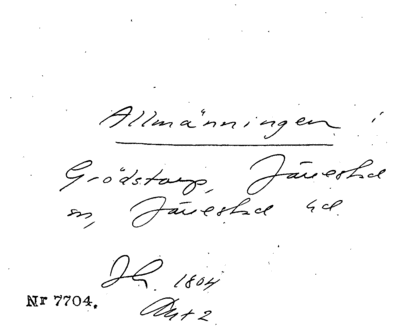 Allmänningen i
Grödstorp, Järrestad
sn, Järrestad hd.
1804
Nr 7704.